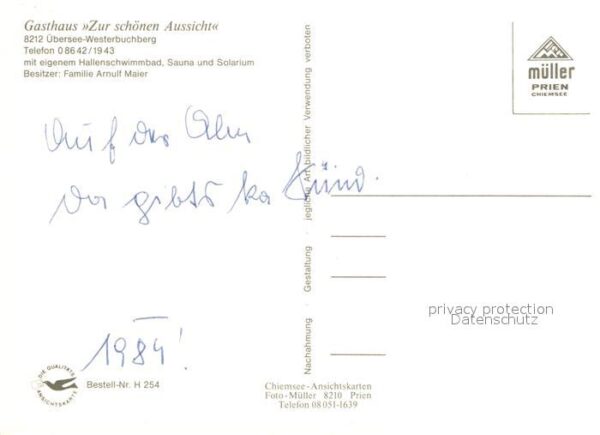 Gasthaus »Zur schönen Aussicht«
8212 Übersee-Westerbuchberg
Telefon 0 86 42 / 19 43
mit eigenem Hallenschwimmbad, Sauna und Solarium
Besitzer: Familie Arnulf Maier
müller
PRIEN
CHIEMSEE
Auf der Alm
da gibts ka Sünd.
1984!
DIE QUALITÄTS
ANSICHTSKARTE
Bestell-Nr. H 254
Nachahmung · Gestaltung · jegliche Art bildlicher Verwendung verboten
privacy protection
Datenschutz
Chiemsee-Ansichtskarten
Foto-Müller 8210 Prien
Telefon 08 051-1639